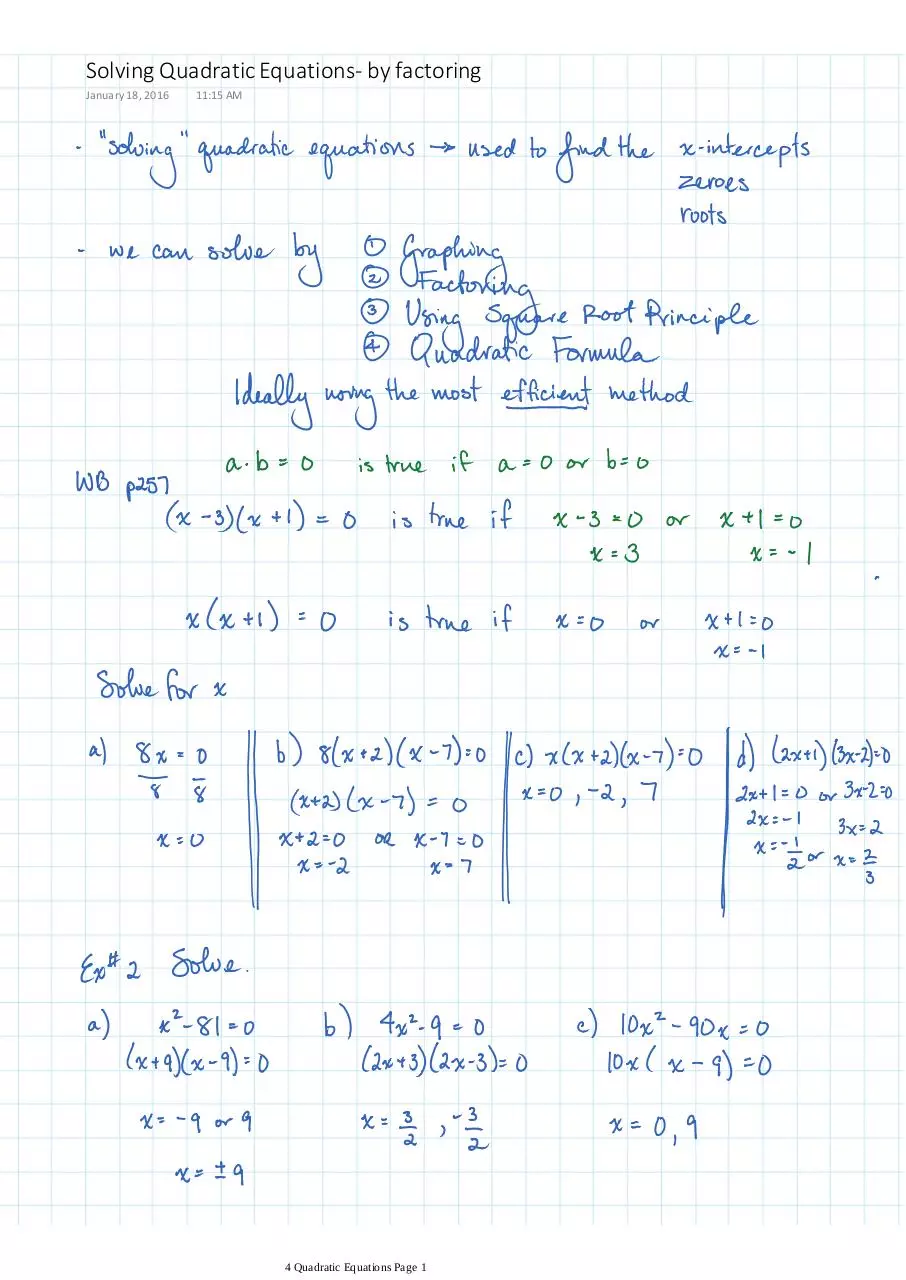 Solving Quadratic Equations- by factoring
January 18, 2016 11:15 AM
- "solving" quadratic equations → used to find the x-intercepts
zeroes
roots
- we can solve by ① Graphing
② Factoring
③ Using Square Root Principle
④ Quadratic Formula
Ideally using the most efficient method
a·b = 0 is true if a = 0 or b = 0
WB p257
(x - 3)(x + 1) = 0 is true if x - 3 = 0 or x + 1 = 0
x = 3 x = -1
x(x + 1) = 0 is true if x = 0 or x + 1 = 0
x = -1
Solve for x
a) 8x = 0 b) 8(x+2)(x-7)=0 c) x(x+2)(x-7)=0 d) (2x+1)(3x-2)=0
8 8 (x+2)(x-7) = 0 x=0, -2, 7 2x+1=0 or 3x-2=0
2x=-1 3x=2
x=0 x+2=0 or x-7=0 x=-1/2 or x=2/3
x=-2 x=7
Ex# 2 Solve.
a) x²-81=0 b) 4x²-9=0 c) 10x²-90x=0
(x+9)(x-9)=0 (2x+3)(2x-3)=0 10x(x-9)=0
x=-9 or 9 x = 3/2, -3/2 x = 0, 9
x = ±9
4 Quadratic Equations Page 1